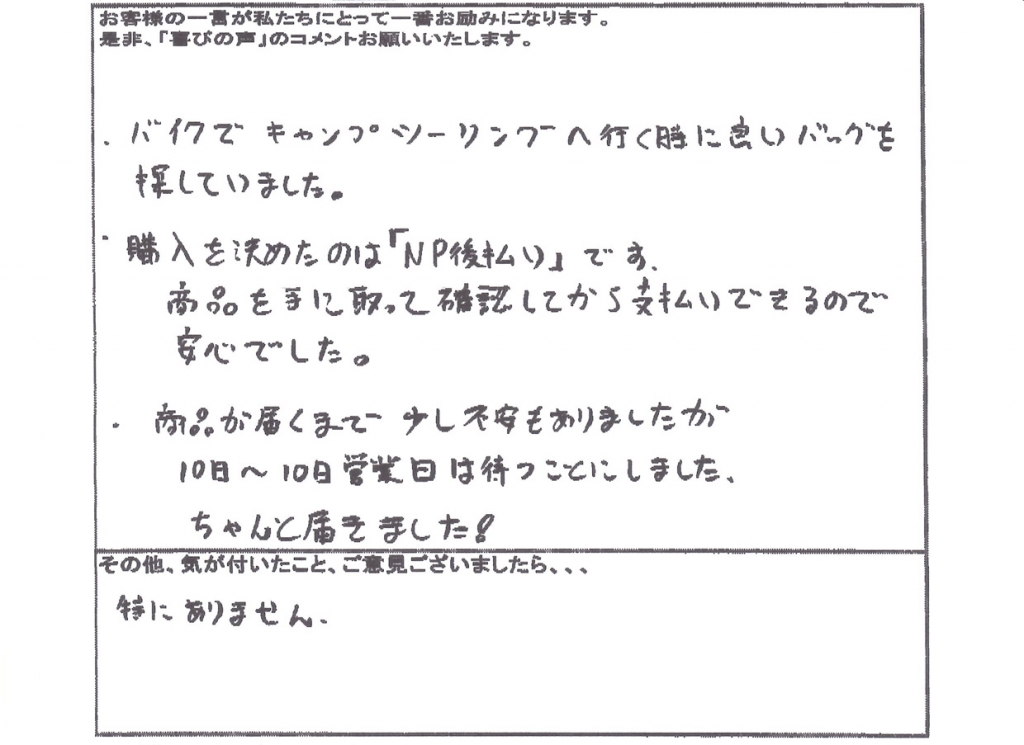 お客様の一言が私たちにとって一番お励みになります。
是非、『喜びの声』のコメントお願いいたします。
・バイクで キャンプツーリングへ行く時に良いバッグを
探していました。
・購入を決めたのは『NP後払い』です、
商品を手に取って確認してから支払いできるので
安心でした。
・商品が届くまで 少し不安もありましたが
10日～10日営業日は待つことにしました、
ちゃんと届きました!
その他、気が付いたこと、ご意見ございましたら、、、
特にありません、